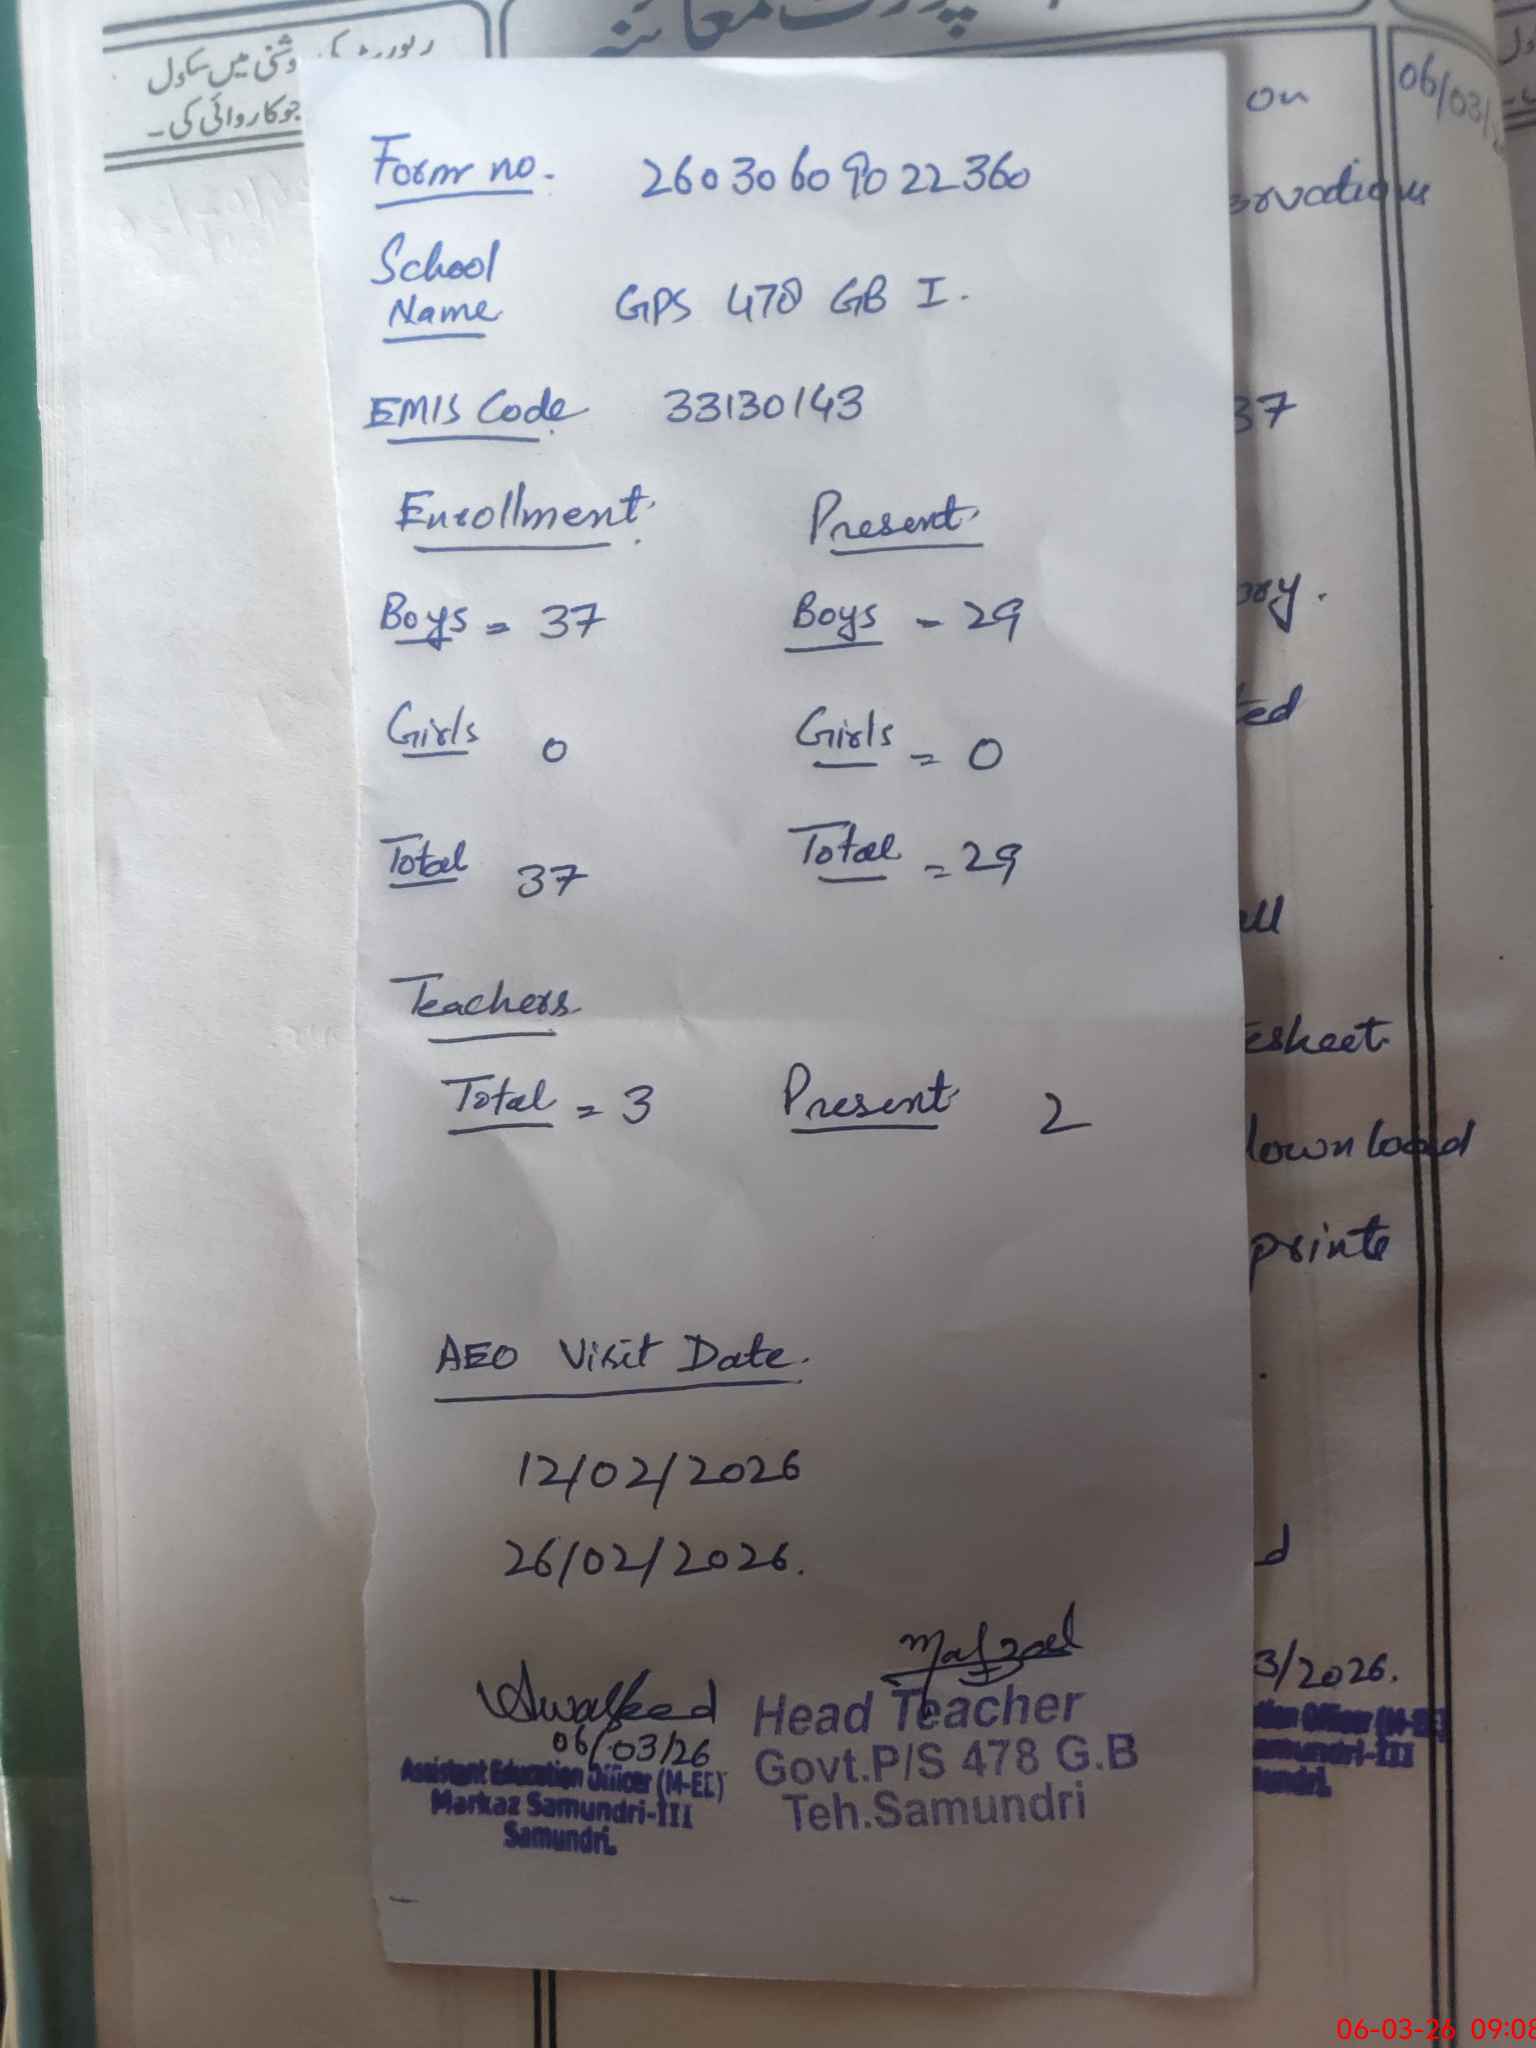 رپورٹ کی روشنی میں سکول
جو کاروائی کی۔
معائنہ
on
06/03/
Form no. 26030609022360
School
Name GPS 478 GB I.
EMIS Code 33130143
37
Enrollment Present
Boys = 37 Boys - 29
Girls 0 Girls = 0
Total 37 Total = 29
Teachers
Total = 3 Present 2
printe
AEO Visit Date.
12/02/2026
26/02/2026.
3/2026.
06/03/26
Assistant Education Officer (M-EE)
Markaz Samundri-III
Samundri.
Head Teacher
Govt.P/S 478 G.B
Teh.Samundri
06-03-26 09:08